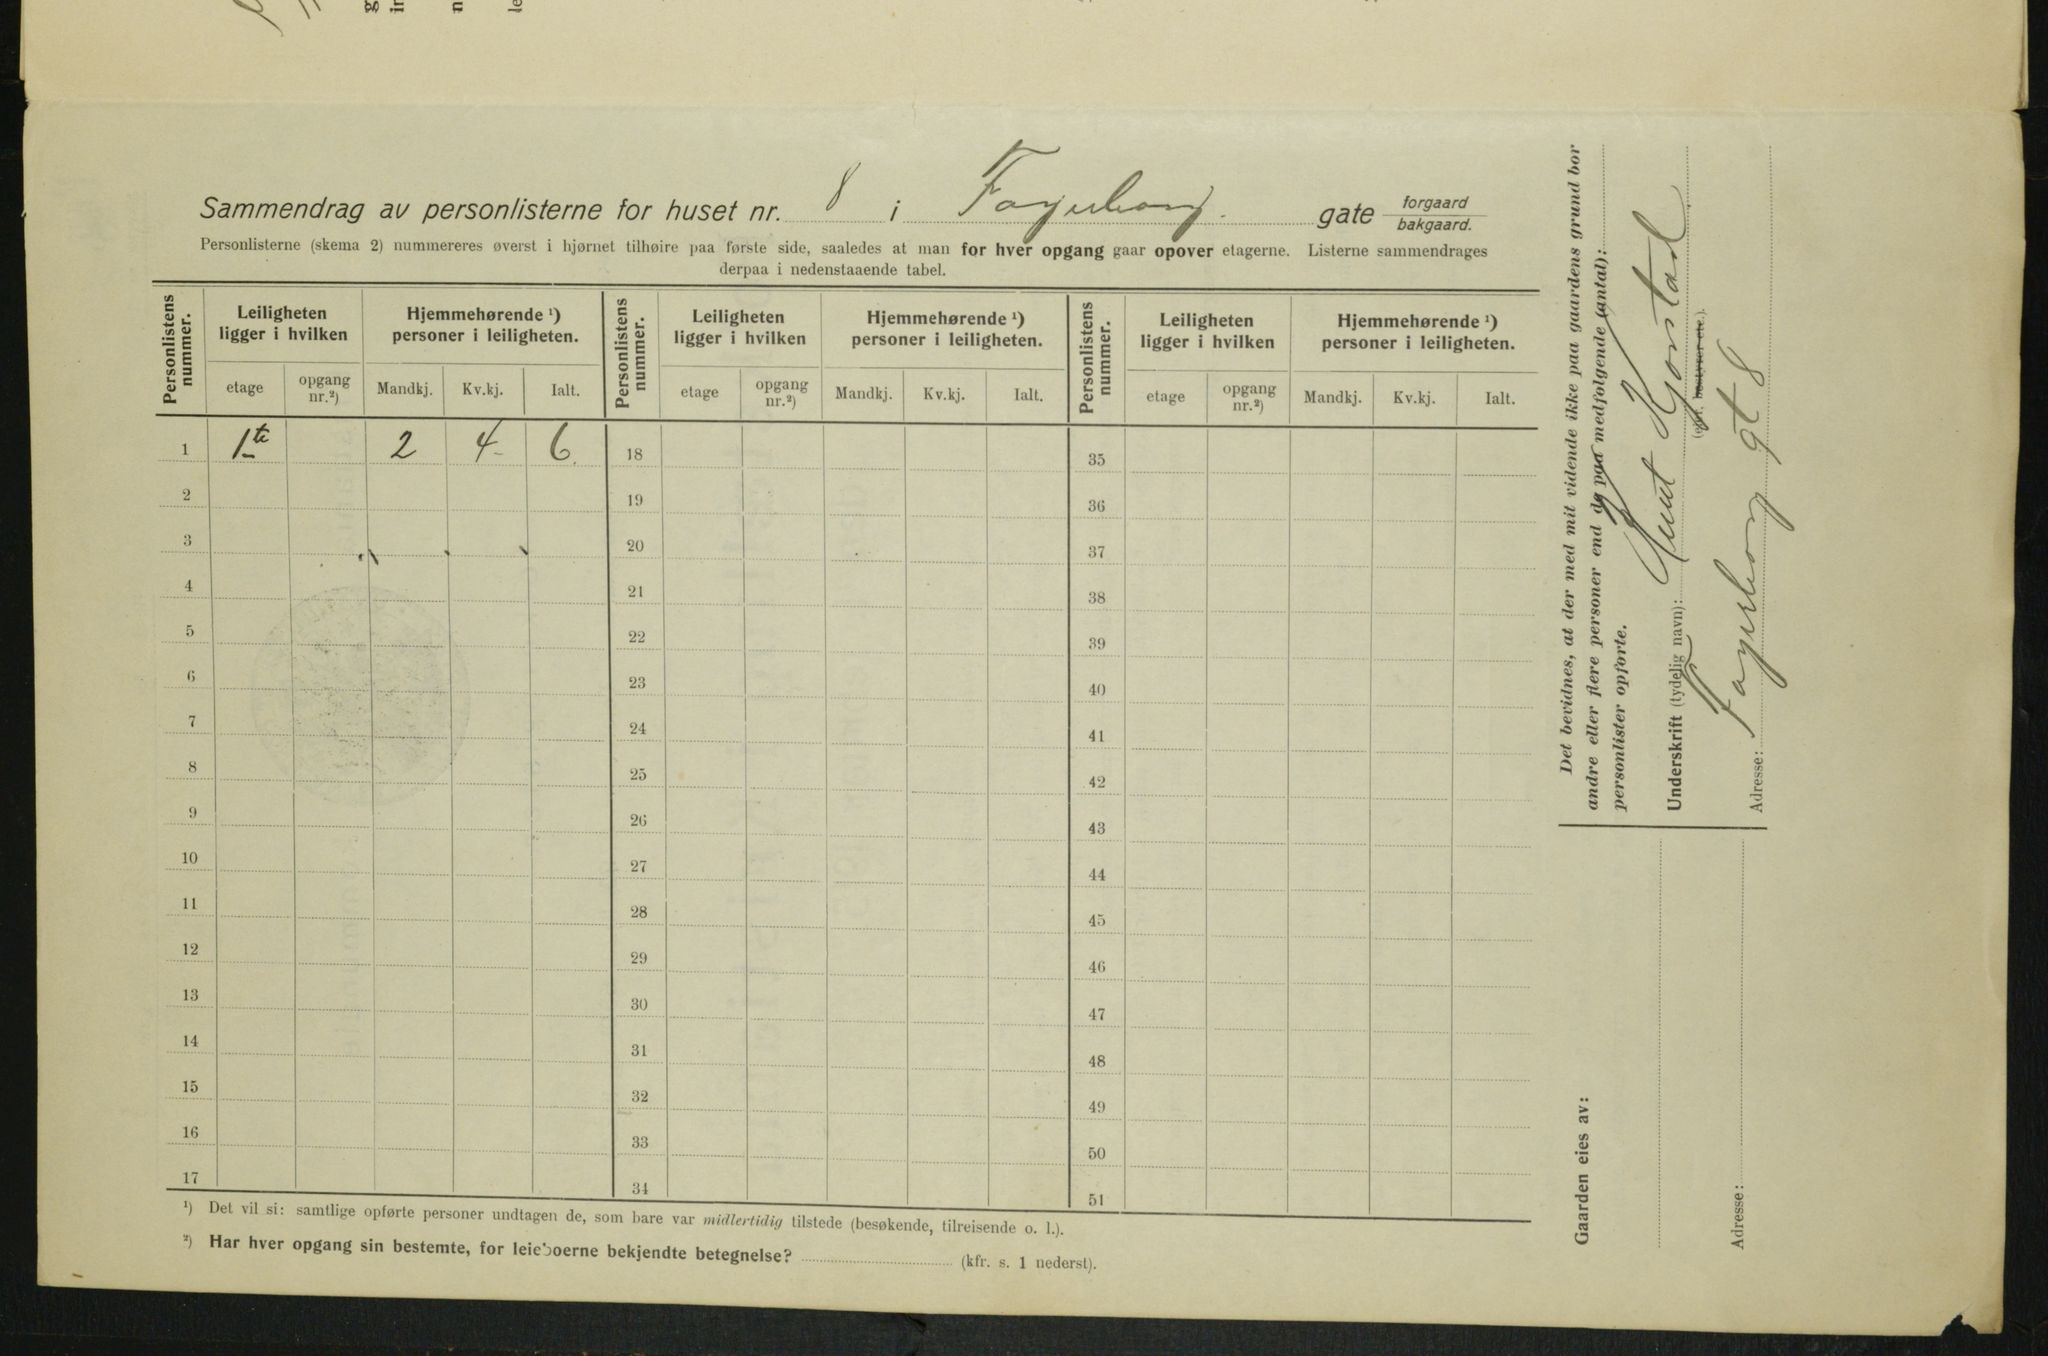 Sammendrag av personlisterne for huset nr. 8 i Fagerborg. gate forgaard bakgaard.
Personlisterne (skema 2) nummereres øverst i hjørnet tilhøire paa første side, saaledes at man for hver opgang gaar opover etagerne. Listerne sammendrages
derpaa i nedenstaaende tabel.
Personlistens nummer. Leiligheten ligger i hvilken Hjemmehørende ¹) personer i leiligheten. Personlistens nummer. Leiligheten ligger i hvilken Hjemmehørende ¹) personer i leiligheten. Personlistens nummer. Leiligheten ligger i hvilken Hjemmehørende ¹) personer i leiligheten.
etage opgang nr.²) Mandkj. Kv.kj. Ialt. etage opgang nr.²) Mandkj. Kv.kj. Ialt. etage opgang nr.²) Mandkj. Kv.kj. Ialt.
1 1te 2 4 6 18 35
2 19 36
3 20 37
4 21 38
5 22 39
6 23 40
7 24 41
8 25 42
9 26 43
10 27 44
11 28 45
12 29 46
13 30 47
14 31 48
15 32 49
16 33 50
17 34 51
¹) Det vil si: samtlige opførte personer undtagen de, som bare var midlertidig tilstede (besøkende, tilreisende o. l.).
²) Har hver opgang sin bestemte, for leieboerne bekjendte betegnelse? (kfr. s. 1 nederst).
Det bevidnes, at der med mit vidende ikke paa gaardens grund bor
andre eller flere personer end de paa medfølgende (antal):
personlister opførte.
Underskrift (tydelig navn): Knut
(eget. bestyrer etc.).
Adresse: Fagerborg gt 8
Gaarden eies av:
Adresse: